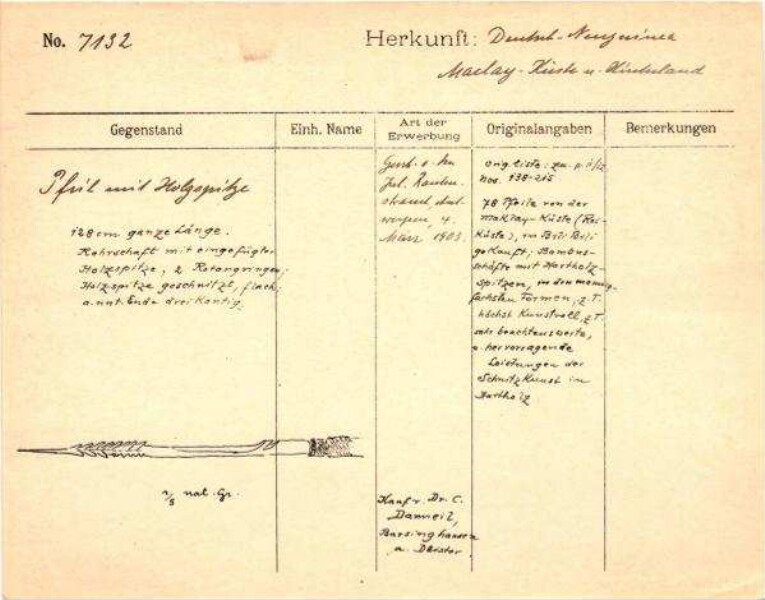 No. 7132
Herkunft: Deutsch-Neuguinea
Maclay-Küste u. Hinterland
Gegenstand
Einh. Name
Art der Erwerbung
Originalangaben
Bemerkungen
Pfeil mit Holzspitze
128 cm ganze Länge.
Rohrschaft mit eingefügter
Holzspitze, 2 Rotangringen;
Holzspitze geschnitzt, flach,
a. unt. Ende dreikantig.
1/5 nat. Gr.
Gesch. v. Hn
Jul. Rauten-
strauch, Ant-
werpen, 4.
März 1903.
Kauf v. Dr. C.
Dammeil,
Barsinghausen
a. Deister
Orig. Liste:
Nos. 138-215
78 Pfeile von der
Maklay-Küste (Rai-
Küste), in Bili Bili
gekauft; Bambus-
schäfte mit Hartholz-
spitzen, in den mannig-
fachsten Formen, z.T.
höchst kunstvoll, z.T.
sehr beachtenswerte,
u. hervorragende
Leistungen der
Schnitzkunst in
Hartholz